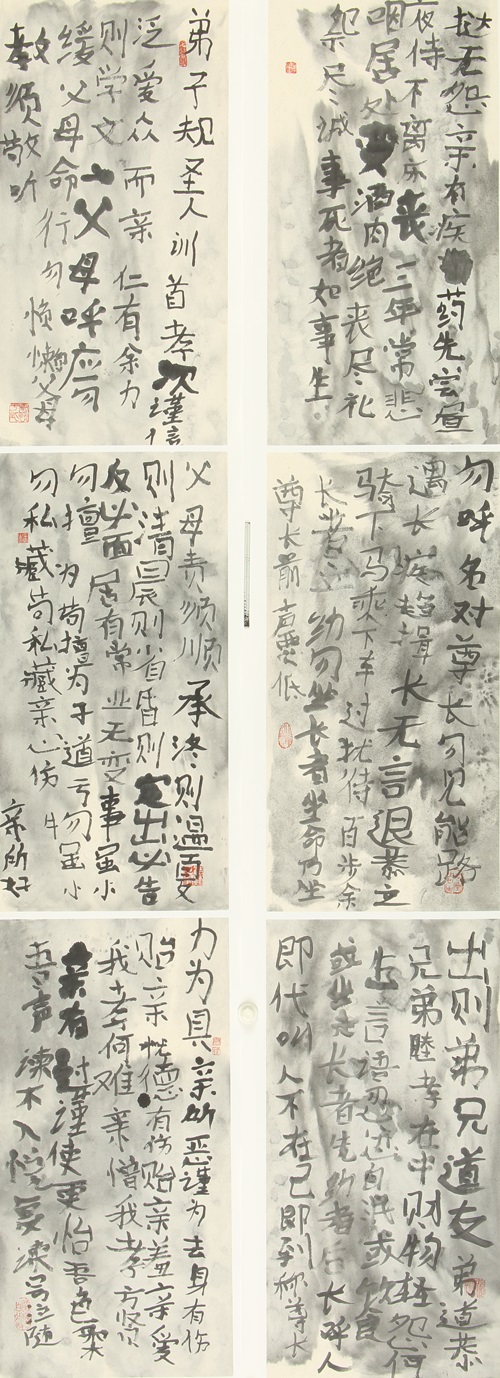 弟子规圣人训首孝次谨信
泛爱众而亲仁有余力
则学文一父母呼应勿
缓父母命行勿懒父母
教须敬听
父母责须顺承冬则温夏
则清晨则省昏则定出必告
反必面居有常业无变事虽小
勿擅为苟擅为子道亏物虽小
勿私藏苟私藏亲心伤
亲所好
力为具亲所恶谨为去身有伤
贻亲忧德有伤贻亲羞亲爱
我孝何难亲憎我孝方贤
亲有过谨使更怡吾色柔
吾声谏不入悦复谏号泣随
挞无怨亲有疾药先尝昼
夜侍不离床丧三年常悲
咽居处变酒肉绝丧尽礼
祭尽诚事死者如事生
出则弟兄道友弟道恭
兄弟睦孝在中财物轻怨何
生言语忍忿自泯或饮食
或坐走长者先幼者后长呼人
即代叫人不在己即到称尊长
勿呼名对尊长勿见能路
遇长疾趋揖长无言退恭立
骑下马乘下车过犹待百步余
长者立幼勿坐长者坐命乃坐
尊长前声要低